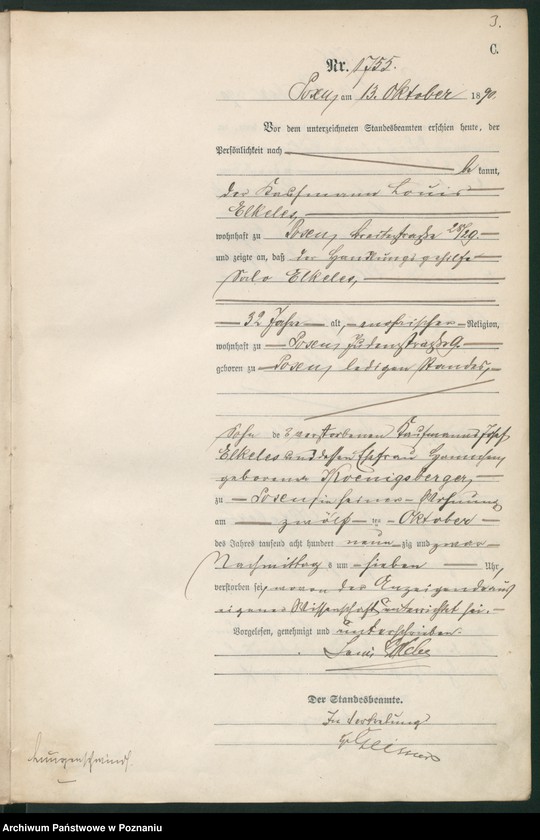 3.
C.
Nr. 1755.
Posen, am 13. Oktober 1890.
Vor dem unterzeichneten Standesbeamten erschien heute, der
Persönlichkeit nach
be kannt,
der Kaufmann Louis
Elkeles,
wohnhaft zu Posen, Breitestraße 28/29.
und zeigte an, daß der Handlungsgehilfe
Salo Elkeles,
32 Jahre alt, mosaischer Religion,
wohnhaft zu Posen, Judenstraße 9.
geboren zu Posen, ledigen Standes,
Sohn des verstorbenen Kaufmanns Josef
Elkeles und dessen Ehefrau
geborener Koenigsberger,
zu Posen in seiner Wohnung
am zwölf ten Oktober
des Jahres tausend acht hundert neun zig und zwar
Nachmittags um sieben Uhr,
verstorben sei, wovon der Anzeigende aus
eigener Wissenschaft unterrichtet sei.
Vorgelesen, genehmigt und unterschrieben
Louis Elkeles
Der Standesbeamte.
In Vertretung
Lungenschwinds.
Archiwum Państwowe w Poznaniu